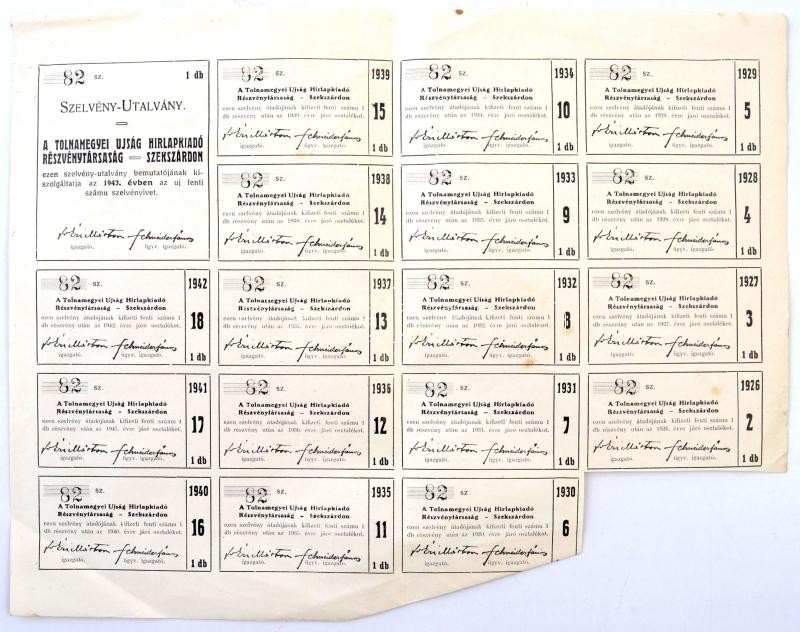 82 sz. 1 db
SZELVÉNY-UTALVÁNY.
A TOLNAMEGYEI UJSÁG HIRLAPKIADÓ
RÉSZVÉNYTÁRSASÁG — SZEKSZÁRDON
ezen szelvény-utalvány bemutatójának ki-
szolgáltatja az 1943. évben az uj fenti
számu szelvényivet.
Dr Éri Márton Schneider János
igazgató. ügyv. igazgató.
82 sz. 1942
A Tolnamegyei Ujság Hirlapkiadó
Részvénytársaság – Szekszárdon
ezen szelvény átadójának kifizeti fenti számu 1
db részvény után az 1942. évre járó osztalékot.
18
Dr Éri Márton Schneider János
igazgató. ügyv. igazgató. 1 db
82 sz. 1941
A Tolnamegyei Ujság Hirlapkiadó
Részvénytársaság – Szekszárdon
ezen szelvény átadójának kifizeti fenti számu 1
db részvény után az 1941. évre járó osztalékot.
17
Dr Éri Márton Schneider János
igazgató. ügyv. igazgató. 1 db
82 sz. 1940
A Tolnamegyei Ujság Hirlapkiadó
Részvénytársaság – Szekszárdon
ezen szelvény átadójának kifizeti fenti számu 1
db részvény után az 1940. évre járó osztalékot.
16
Dr Éri Márton Schneider János
igazgató. ügyv. igazgató. 1 db
82 sz. 1939
A Tolnamegyei Ujság Hirlapkiadó
Részvénytársaság – Szekszárdon
ezen szelvény átadójának kifizeti fenti számu 1
db részvény után az 1939. évre járó osztalékot.
15
Dr Éri Márton Schneider János
igazgató. ügyv. igazgató. 1 db
82 sz. 1938
A Tolnamegyei Ujság Hirlapkiadó
Részvénytársaság – Szekszárdon
ezen szelvény átadójának kifizeti fenti számu 1
db részvény után az 1938. évre járó osztalékot.
14
Dr Éri Márton Schneider János
igazgató. ügyv. igazgató. 1 db
82 sz. 1937
A Tolnamegyei Ujság Hirlapkiadó
Részvénytársaság – Szekszárdon
ezen szelvény átadójának kifizeti fenti számu 1
db részvény után az 1937. évre járó osztalékot.
13
Dr Éri Márton Schneider János
igazgató. ügyv. igazgató. 1 db
82 sz. 1936
A Tolnamegyei Ujság Hirlapkiadó
Részvénytársaság – Szekszárdon
ezen szelvény átadójának kifizeti fenti számu 1
db részvény után az 1936. évre járó osztalékot.
12
Dr Éri Márton Schneider János
igazgató. ügyv. igazgató. 1 db
82 sz. 1935
A Tolnamegyei Ujság Hirlapkiadó
Részvénytársaság – Szekszárdon
ezen szelvény átadójának kifizeti fenti számu 1
db részvény után az 1935. évre járó osztalékot.
11
Dr Éri Márton Schneider János
igazgató. ügyv. igazgató. 1 db
82 sz. 1934
A Tolnamegyei Ujság Hirlapkiadó
Részvénytársaság – Szekszárdon
ezen szelvény átadójának kifizeti fenti számu 1
db részvény után az 1934. évre járó osztalékot.
10
Dr Éri Márton Schneider János
igazgató. ügyv. igazgató. 1 db
82 sz. 1933
A Tolnamegyei Ujság Hirlapkiadó
Részvénytársaság – Szekszárdon
ezen szelvény átadójának kifizeti fenti számu 1
db részvény után az 1933. évre járó osztalékot.
9
Dr Éri Márton Schneider János
igazgató. ügyv. igazgató. 1 db
82 sz. 1932
A Tolnamegyei Ujság Hirlapkiadó
Részvénytársaság – Szekszárdon
ezen szelvény átadójának kifizeti fenti számu 1
db részvény után az 1932. évre járó osztalékot.
8
Dr Éri Márton Schneider János
igazgató. ügyv. igazgató. 1 db
82 sz. 1931
A Tolnamegyei Ujság Hirlapkiadó
Részvénytársaság – Szekszárdon
ezen szelvény átadójának kifizeti fenti számu 1
db részvény után az 1931. évre járó osztalékot.
7
Dr Éri Márton Schneider János
igazgató. ügyv. igazgató. 1 db
82 sz. 1930
A Tolnamegyei Ujság Hirlapkiadó
Részvénytársaság – Szekszárdon
ezen szelvény átadójának kifizeti fenti számu 1
db részvény után az 1930. évre járó osztalékot.
6
Dr Éri Márton Schneider János
igazgató. ügyv. igazgató.
82 sz. 1929
A Tolnamegyei Ujság Hirlapkiadó
Részvénytársaság – Szekszárdon
ezen szelvény átadójának kifizeti fenti számu 1
db részvény után az 1929. évre járó osztalékot.
5
Dr Éri Márton Schneider János
igazgató. ügyv. igazgató. 1 db
82 sz. 1928
A Tolnamegyei Ujság Hirlapkiadó
Részvénytársaság – Szekszárdon
ezen szelvény átadójának kifizeti fenti számu 1
db részvény után az 1928. évre járó osztalékot.
4
Dr Éri Márton Schneider János
igazgató. ügyv. igazgató. 1 db
82 sz. 1927
A Tolnamegyei Ujság Hirlapkiadó
Részvénytársaság – Szekszárdon
ezen szelvény átadójának kifizeti fenti számu 1
db részvény után az 1927. évre járó osztalékot.
3
Dr Éri Márton Schneider János
igazgató. ügyv. igazgató. 1 db
82 sz. 1926
A Tolnamegyei Ujság Hirlapkiadó
Részvénytársaság – Szekszárdon
ezen szelvény átadójának kifizeti fenti számu 1
db részvény után az 1926. évre járó osztalékot.
2
Dr Éri Márton Schneider János
igazgató. ügyv. igazgató.